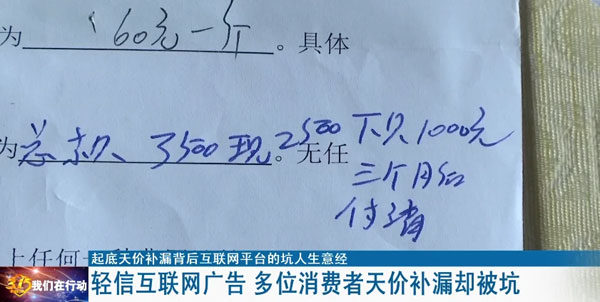 为 160元一个 。具体
为总款 3500 现 2500 下欠 1000元
。无任
三个月后
付清
上任何一
起底天价补漏背后互联网平台的坑人生意经
我们在行动
轻信互联网广告 多位消费者天价补漏却被坑